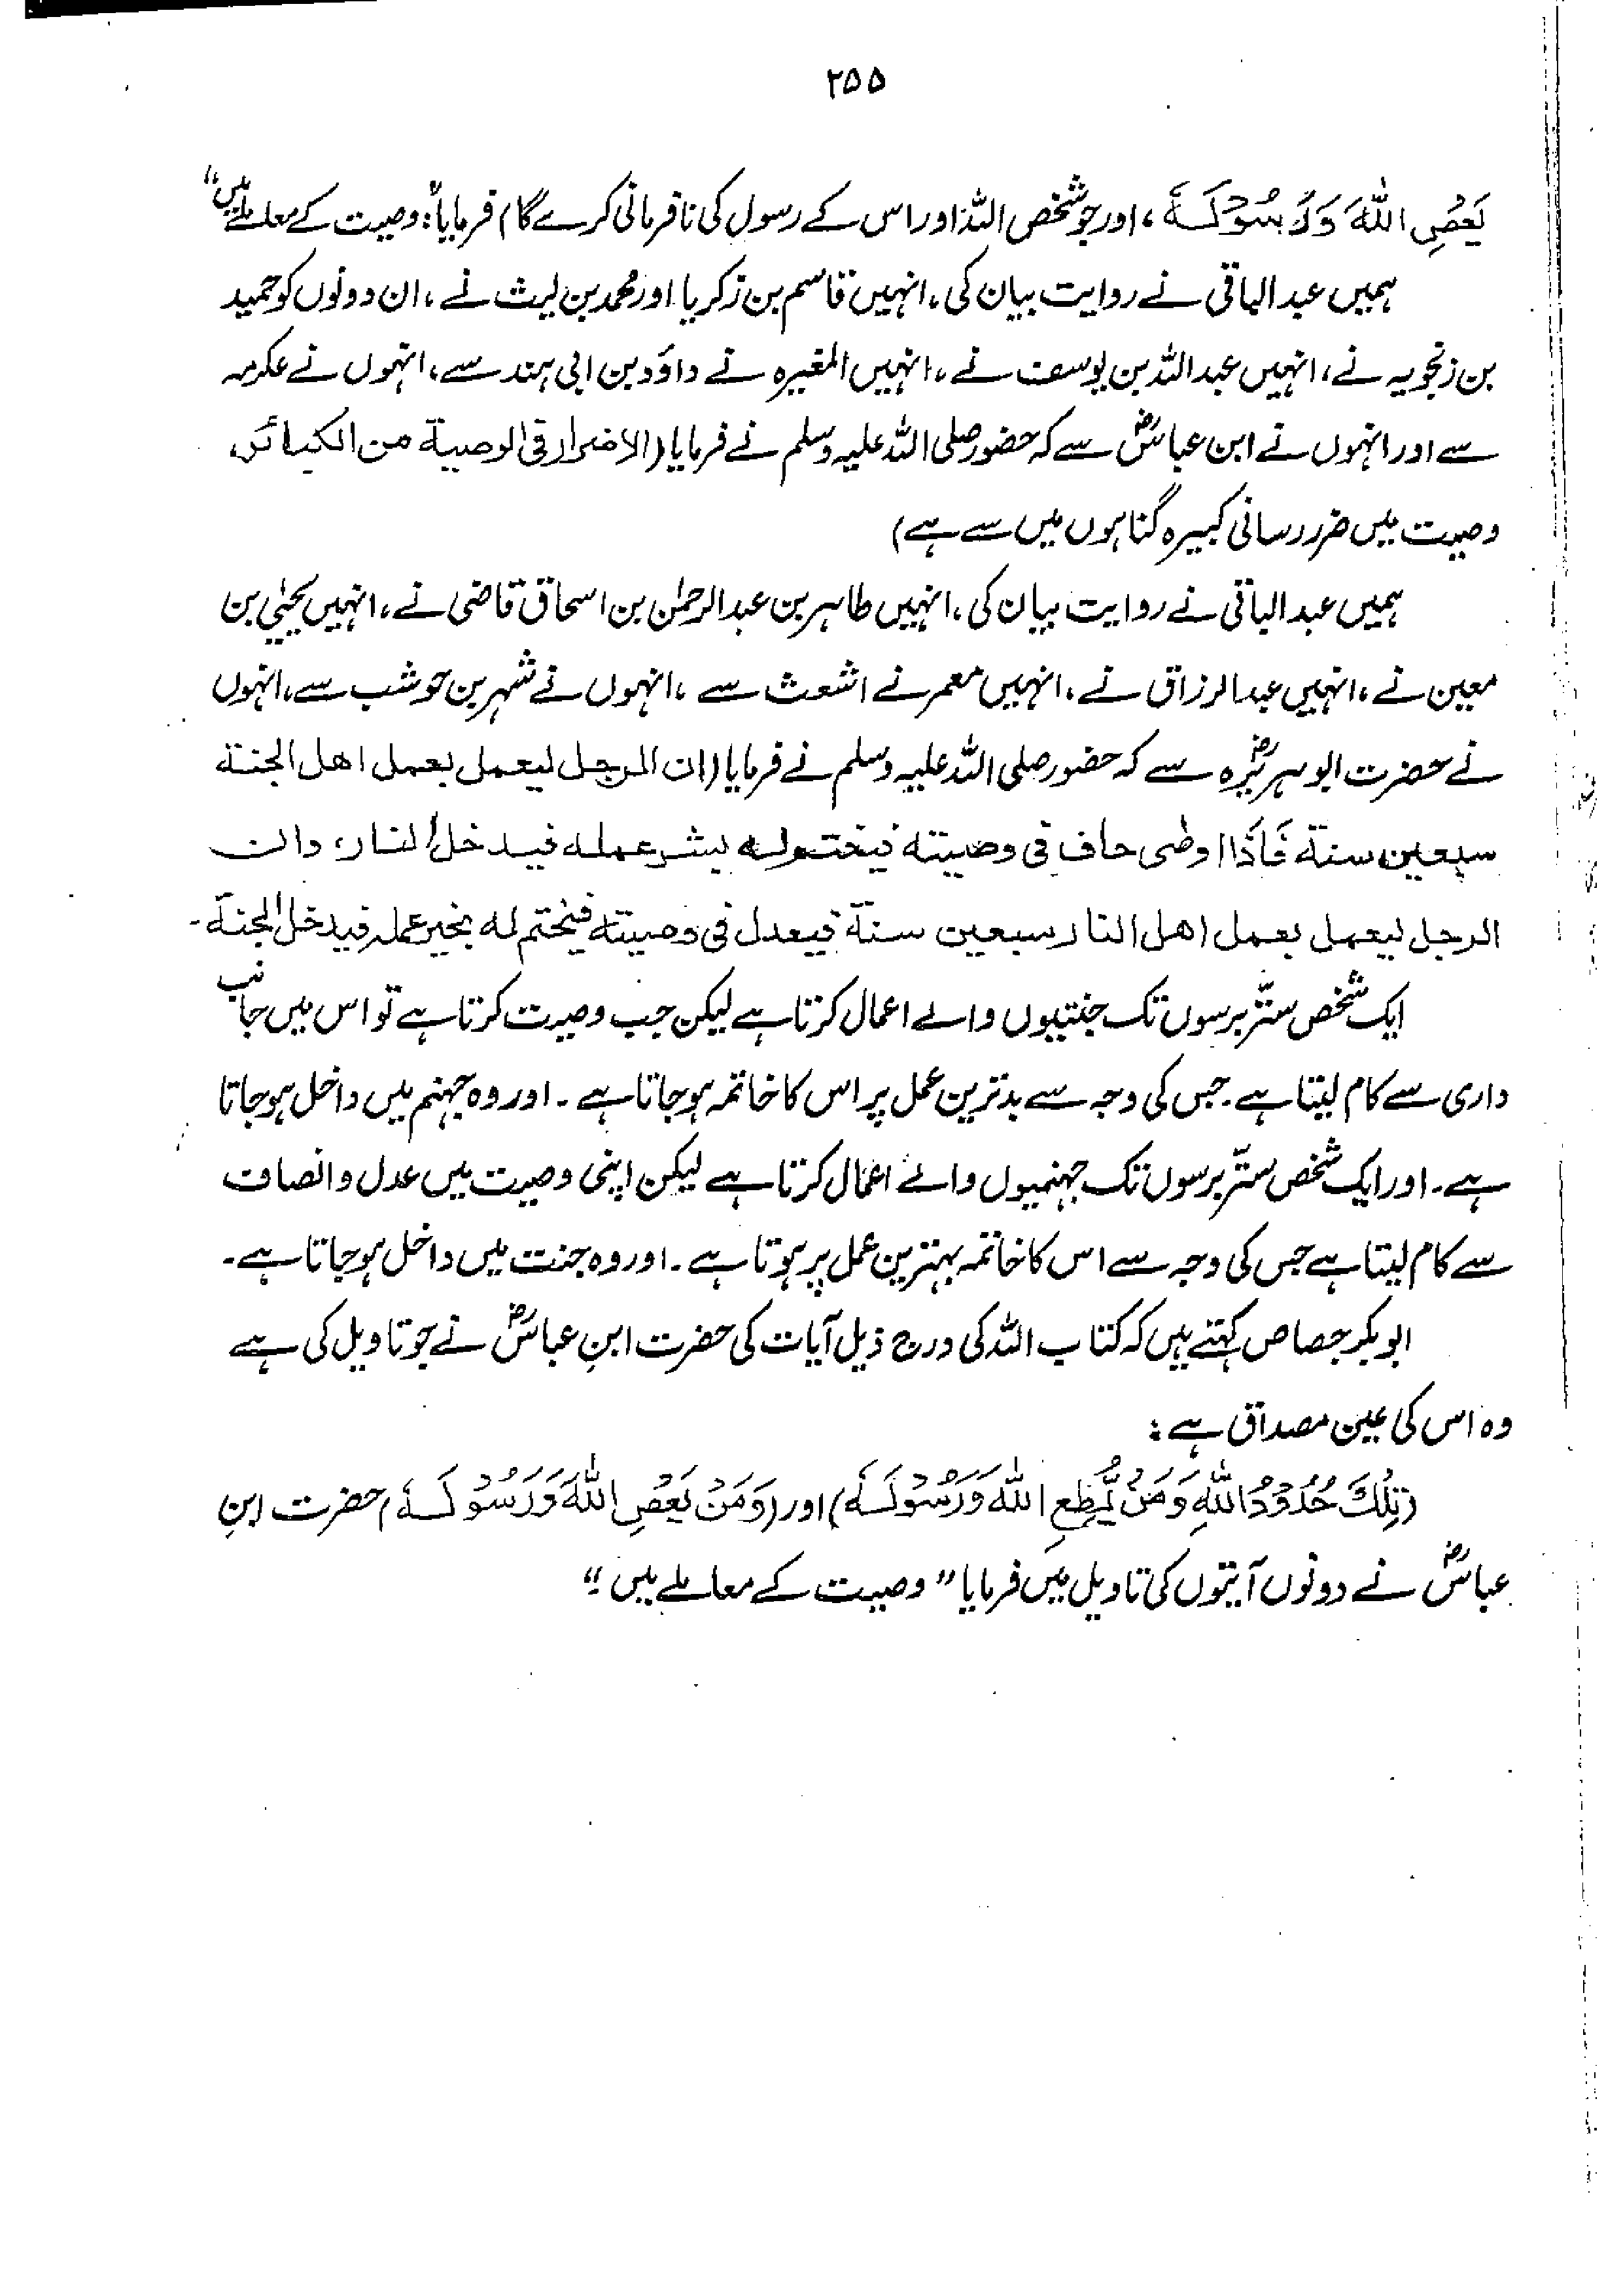 ۲۵۵
يَعْصِ اللهَ وَرَسُوْلَهُ ، اور جو شخص اللہ اور اس کے رسول کی نافرمانی کرے گا) فرمایا: "وصیت کے معاملے میں"
ہمیں عبدالباقی نے روایت بیان کی، انہیں قاسم بن زکریا اور محمد بن لیث نے، ان دونوں کو حمید
بن زنجویہ نے، انہیں عبداللہ بن یوسف نے، انہیں المغیرہ نے داؤد بن ابی ہند سے، انہوں نے عکرمہ
سے اور انہوں نے ابن عباسؓ سے کہ حضور صلی اللہ علیہ وسلم نے فرمایا (الاضرار فی الوصیة من الکبائر،
وصیت میں ضرر رسانی کبیرہ گناہوں میں سے ہے)
ہمیں عبدالباقی نے روایت بیان کی، انہیں طاہر بن عبدالرحمٰن بن اسحاق قاضی نے، انہیں یحییٰ بن
معین نے، انہیں عبدالرزاق نے، انہیں معمر نے اشعث سے، انہوں نے شہر بن حوشب سے، انہوں
نے حضرت ابوہریرہؓ سے کہ حضور صلی اللہ علیہ وسلم نے فرمایا (ان الرجل لیعمل بعمل اهل الجنة
سبعین سنة فَاَذَا اوصٰی حاف فی وصیته فیختم له بشر عمله فیدخل النار، وان
الرجل لیعمل بعمل اهل النار سبعین سنة فیعدل فی وصیته فیختم له بخیر عمله فیدخل الجنة۔
ایک شخص ستّر برسوں تک جنتیوں والے اعمال کرتا ہے لیکن جب وصیت کرتا ہے تو اس میں جانب
داری سے کام لیتا ہے۔ جس کی وجہ سے بدترین عمل پر اس کا خاتمہ ہوجاتا ہے۔ اور وہ جہنم میں داخل ہوجاتا
ہے۔ اور ایک شخص ستّر برسوں تک جہنمیوں والے اعمال کرتا ہے لیکن اپنی وصیت میں عدل و انصاف
سے کام لیتا ہے جس کی وجہ سے اس کا خاتمہ بہترین عمل پر ہوتا ہے۔ اور وہ جنت میں داخل ہوجاتا ہے۔
ابوبکر جصاص کہتے ہیں کہ کتاب اللہ کی درج ذیل آیات کی حضرت ابنِ عباسؓ نے جو تاویل کی ہے
وہ اس کی عین مصداق ہے:
(تِلْكَ حُدُوْدُ اللهِ وَمَنْ يُّطِعِ اللهَ وَرَسُوْلَهُ) اور (وَمَنْ يَعْصِ اللهَ وَرَسُوْلَهُ) حضرت ابنِ
عباسؓ نے دونوں آیتوں کی تاویل میں فرمایا "وصیت کے معاملے میں"۔